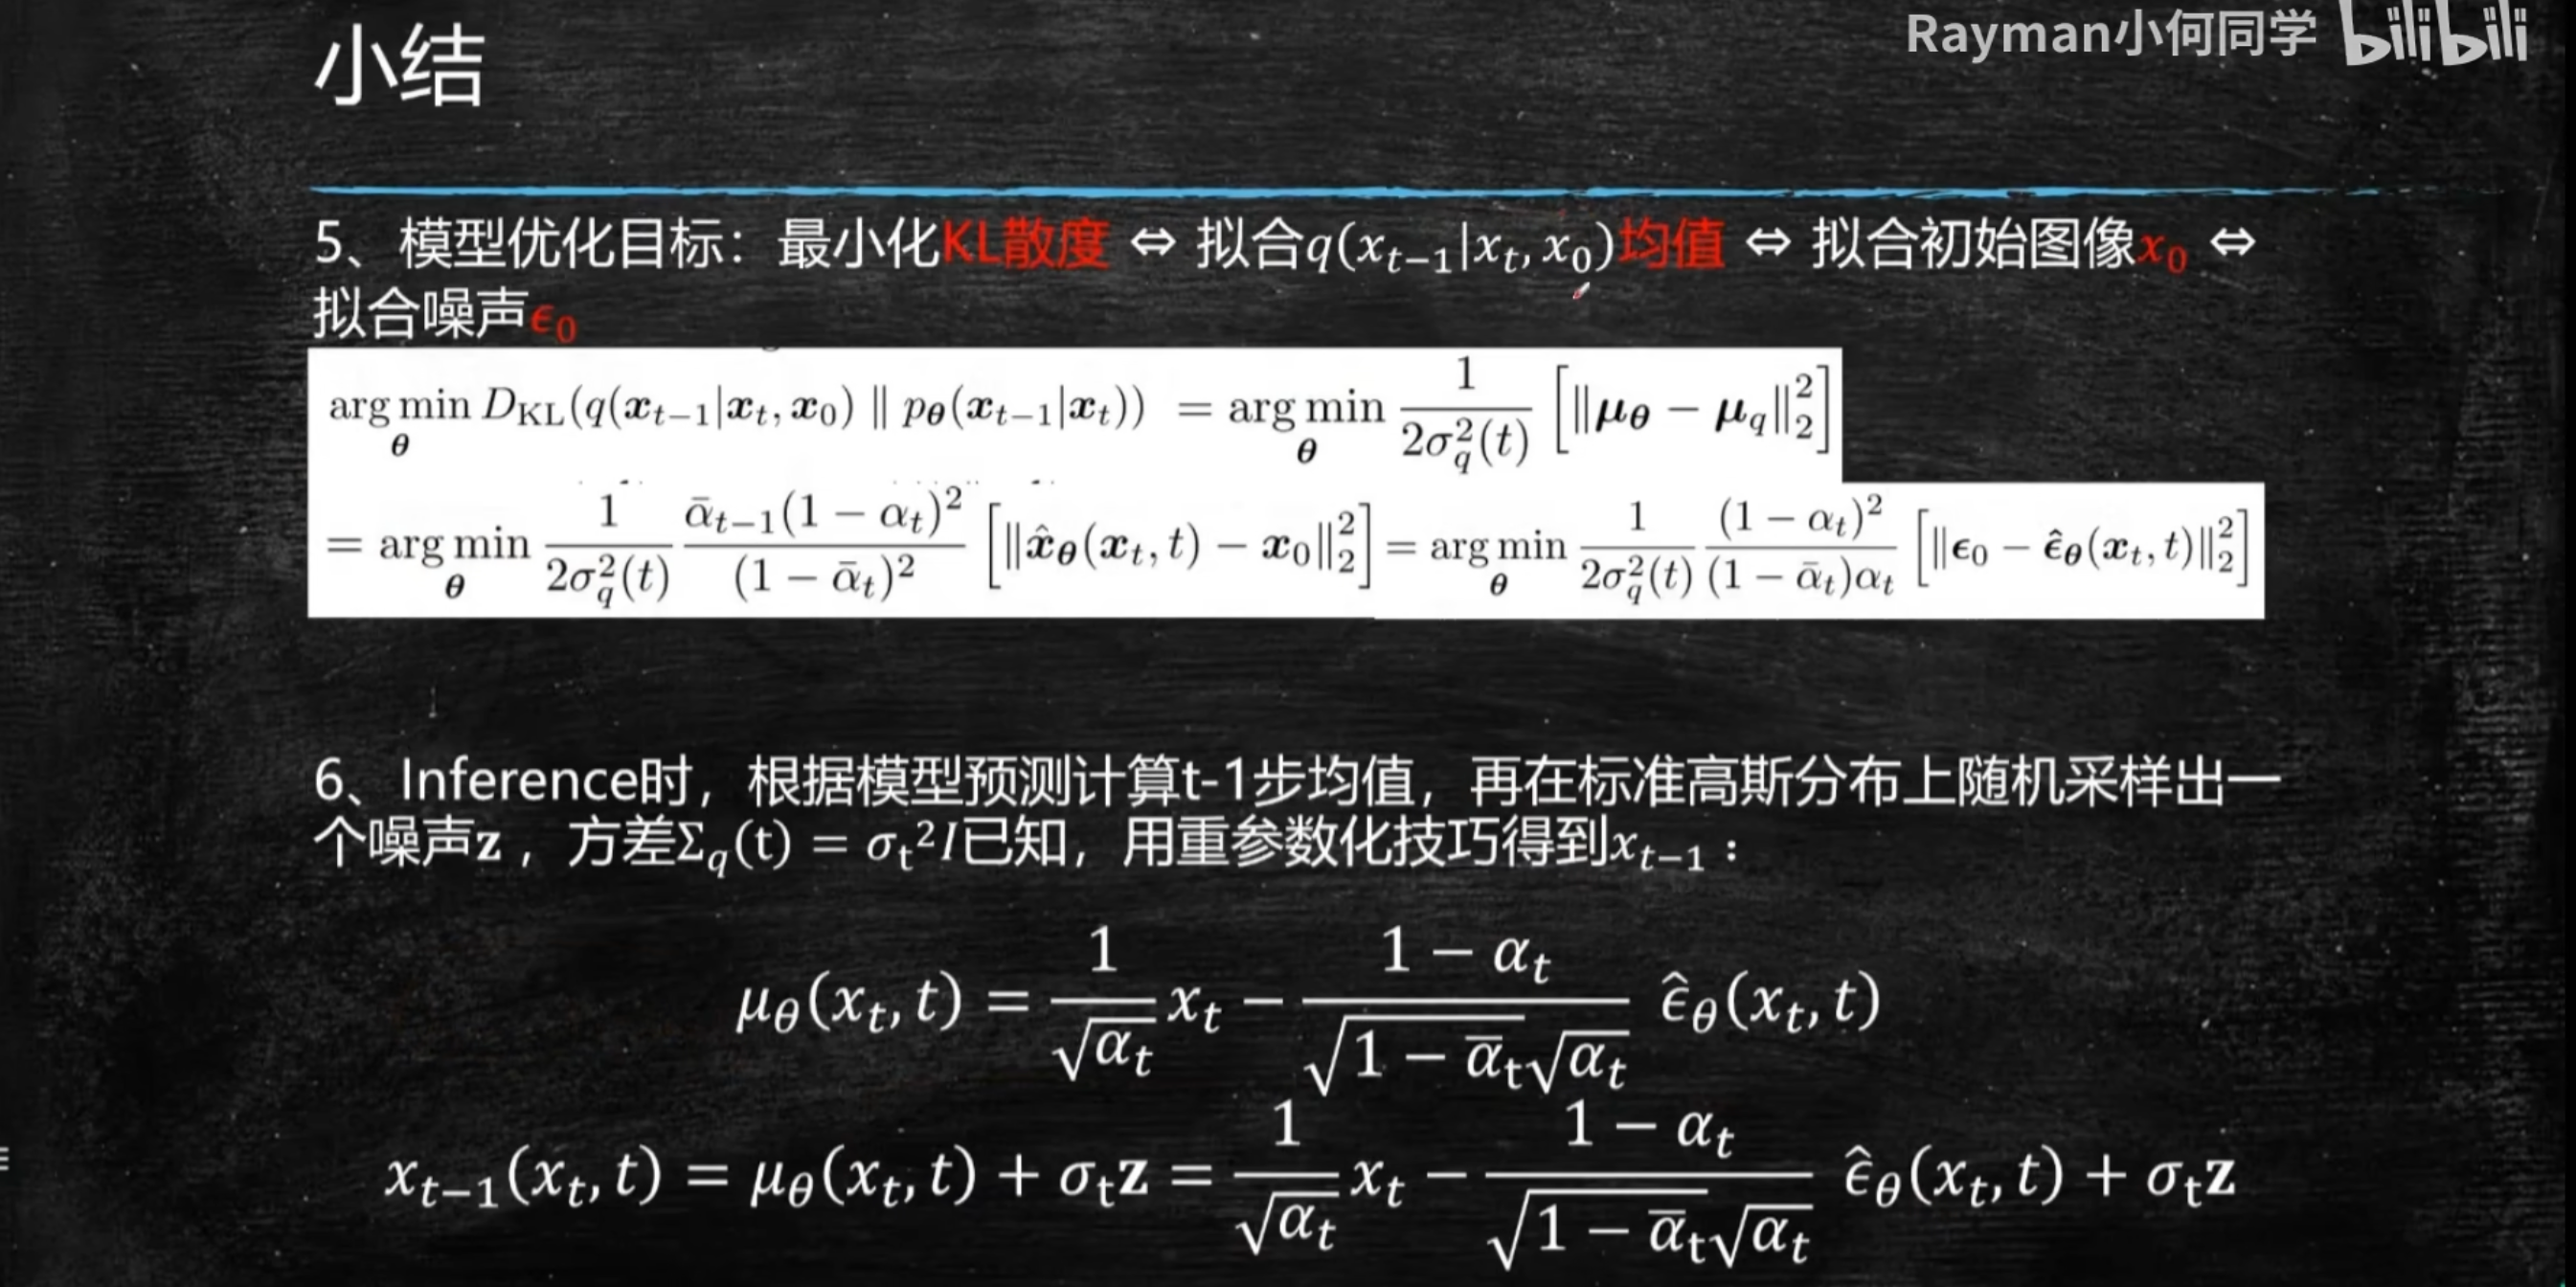 Rayman小何同学 bilibili
小结
5、模型优化目标：最小化KL散度 ⇔ 拟合q(x_{t−1}|x_t, x_0)均值 ⇔ 拟合初始图像x_0 ⇔
拟合噪声ϵ_0
arg min_θ D_KL(q(x_{t−1}|x_t, x_0) ∥ p_θ(x_{t−1}|x_t)) = arg min_θ \frac{1}{2σ_q^2(t)} [∥μ_θ − μ_q∥_2^2]
= arg min_θ \frac{1}{2σ_q^2(t)} \frac{\bar{α}_{t−1}(1 − α_t)^2}{(1 − \bar{α}_t)^2} [∥\hat{x}_θ(x_t, t) − x_0∥_2^2] = arg min_θ \frac{1}{2σ_q^2(t)} \frac{(1 − α_t)^2}{(1 − \bar{α}_t)α_t} [∥ϵ_0 − \hat{ϵ}_θ(x_t, t)∥_2^2]
6、Inference时，根据模型预测计算t-1步均值，再在标准高斯分布上随机采样出一
个噪声z，方差Σ_q(t) = σ_t^2 I已知，用重参数化技巧得到x_{t−1}：
μ_θ(x_t, t) = \frac{1}{\sqrt{α_t}} x_t − \frac{1 − α_t}{\sqrt{1 − \bar{α}_t}\sqrt{α_t}} \hat{ϵ}_θ(x_t, t)
x_{t−1}(x_t, t) = μ_θ(x_t, t) + σ_t z = \frac{1}{\sqrt{α_t}} x_t − \frac{1 − α_t}{\sqrt{1 − \bar{α}_t}\sqrt{α_t}} \hat{ϵ}_θ(x_t, t) + σ_t z